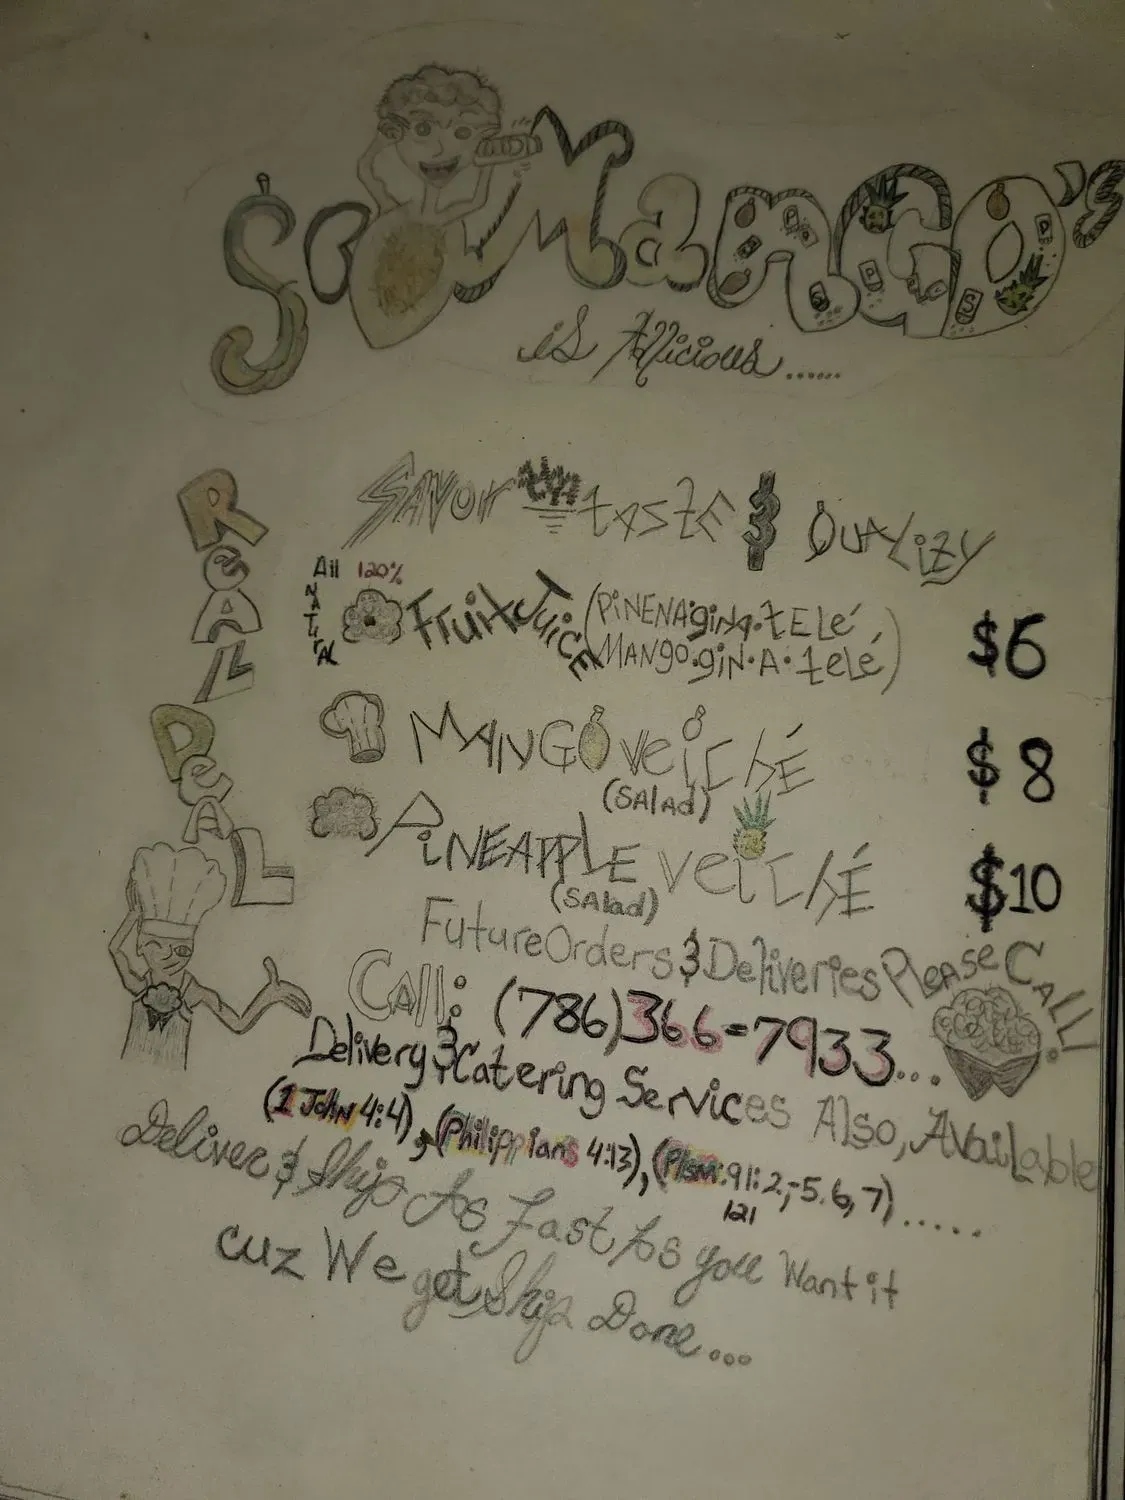 So Mango's
is Allicious......
REAL DEAL
Savor taste & Quality
All 120% Natural Fruit Juice (PiNENAgiNA·tELé, $6
MANgo·giN·A·telé)
MANGO veiChÉ $8
(SAlAd)
PiNEAPPLE veiChÉ $10
(SAlad)
Future Orders & Deliveries Please CAll!
CAll: (786)366-7933...
Delivery & Catering Services Also, Available
(1 John 4:4), (Philippians 4:13), (Plsm:91:2,-5.6,7).....
121
Deliver & Ships As Fast As you Want it
cuz We get Ship Done...